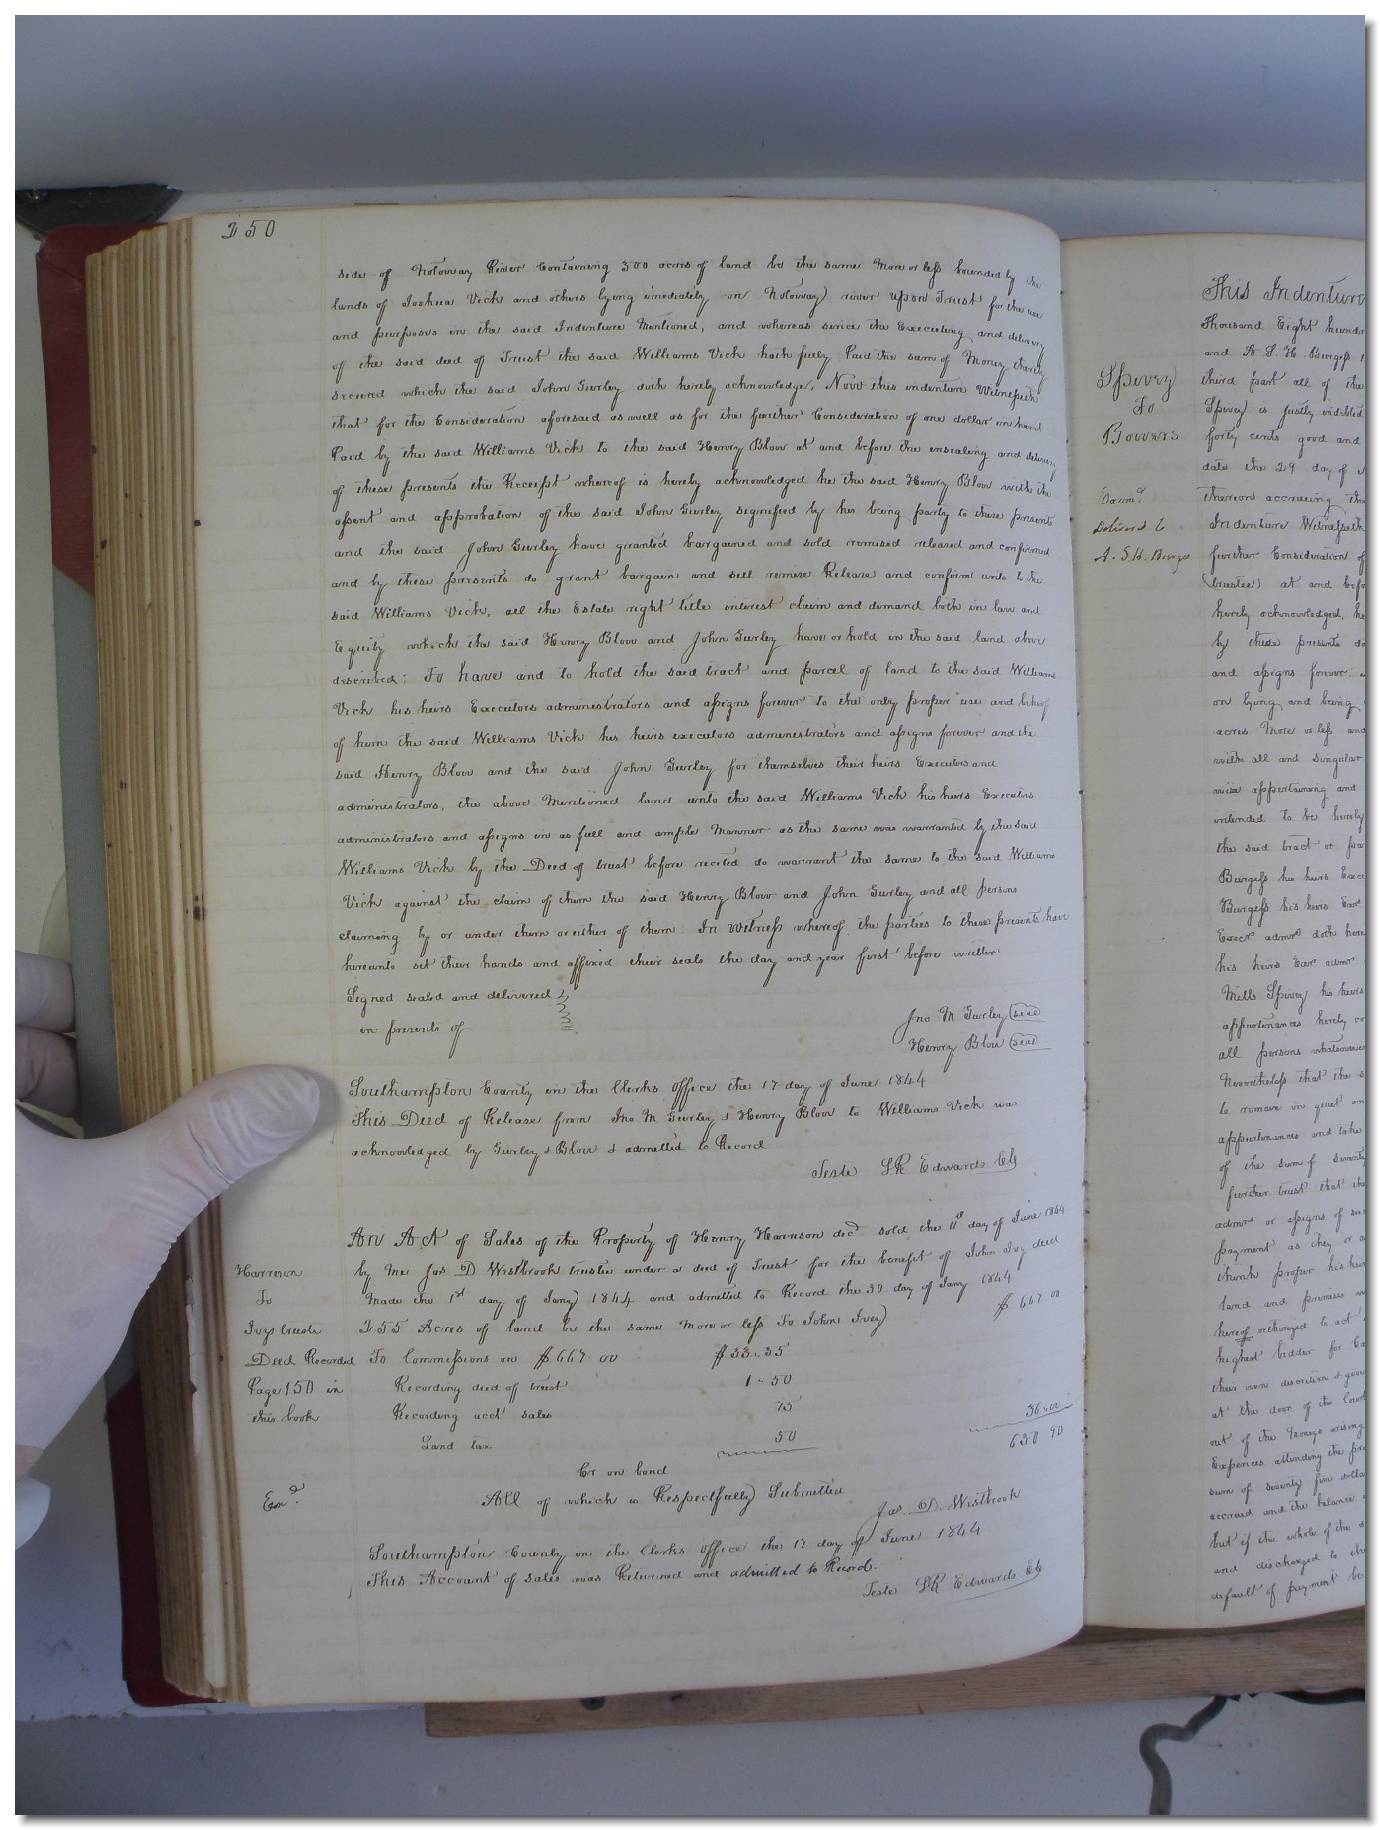 250
side of Notoway River Containing 300 acres of land be the same More or less bounded by the
lands of Joshua Vick and others lying imediately on Notoway river upon Trust for the use
and purposes in the said Indenture Mentioned, and whereas since the Executing and delivery
of the said deed of Trust the said Williams Vick hath fully Paid the sum of Money thereby
secured which the said John Gurley doth hereby acknowledge, Now this indenture Witnesseth
that for the Consideration aforesaid as well as for the further Consideration of one dollar in hand
Paid by the said Williams Vick to the said Henry Blow at and before the ensealing and delivery
of these presents the Receipt whereof is hereby acknowledged he the said Henry Blow with the
assent and approbation of the said John Gurley signified by his being party to these presents
and the said John Gurley have granted bargained and sold remised released and confirmed
and by these presents do grant bargain and sell remise Release and confirm unto to the
said Williams Vick, all the Estate right title interest claim and demand both in law and
Equity which the said Henry Blow and John Gurley have or hold in the said land above
described: To have and to hold the said tract and parcel of land to the said Williams
Vick his heirs Executors administrators and assigns forever to the only proper use and behoof
of him the said Williams Vick his heirs executors administrators and assigns forever and the
said Henry Blow and the said John Gurley for themselves their heirs Executors and
administrators, the above Mentioned land unto the said Williams Vick his heirs Executors
administrators and assigns in as full and ample Manner as the same was warranted by the said
Williams Vick by the Deed of trust before recited do warrant the same to the said Williams
Vick against the claim of them the said Henry Blow and John Gurley and all persons
claiming by or under them or either of them In Witness whereof the parties to these presents have
hereunto set their hands and affixed their seals the day and year first before written
Signed sealed and delivered
in presents of
Jno M Gurley seal
Henry Blow seal
Southampton County in the Clerks Office the 17 day of June 1844
This Deed of Release from Jno M Gurley & Henry Blow to Williams Vick was
acknowledged by Gurley & Blow & admitted to Record
Teste LR Edwards Clk
An Act of Sales of the Property of Henry Harrison decd sold the 11th day of June 1844
by me Jas D Westbrook trustee under a deed of Trust for the benefit of John Ivy deed
Made the 1st day of Jany 1844 and admitted to Record the 30 day of Jany 1844
255 Acres of land be the same More or less To John Ivey $ 667 00
To Commissions on $667.00 $33.35
Recording deed of trust 1-50
Recording acct sales 75
Land tax 50 36.00
630 90
Cr on bond
All of which is Respectfully Submitted
Jas. D. Westbrook
Southampton County in the Clerks Office the 17 day of June 1844
This Account of sales was Returned and admitted to Record.
Teste LR Edwards Clk
Harrison
To
Ivys trustee
Deed Recorded
Page 150 in
this book
Exmd
Spivey
To
Bowers
Exmd
Delivered to
A. S. H. Burgess
This Indenture
Thousand Eight hundr
and A. S. H. Burgess
third part all of the
Spivey is justly indebted
forty cents good and
date the 29 day of
thereon accruing
Indenture Witnesseth
further Consideration of
(trustee) at and befo
hereby acknowledged, he
by these presents do
and assigns forever
on lying and being
acres More or less and
with all and singular
wise appertaining and
intended to be hereby
the said tract or par
Burgess his heirs Exec
Burgess his heirs Exer
Execr admrs doth here
his heirs Exer admr
Mills Spivey his heirs
appurtinances hereby co
all persons whatsoever
Neverthelss that the s
to remain in quiet an
appurtenances and take
of the sum of seventy
further trust that the
admr or assigns of
payment as they or a
think proper his heir
land and premises
hereof orthorized to act
highest bidder for Ca
their own discretion & givi
at the door of the Court
out of the moneys arising
Expences attending the pre
sum of seventy five dolla
accrued and the balance
but if the whole of the s
and discharged to the
default of payment be